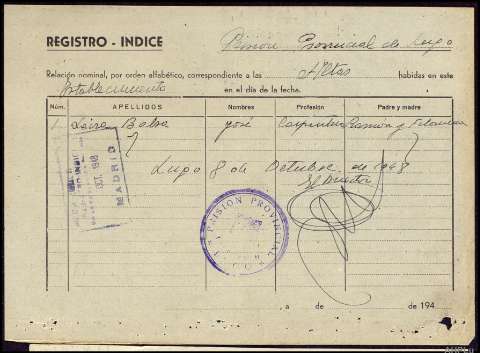 REGISTRO - INDICE Prisión Provincial de Lugo
Relación nominal, por orden alfabético, correspondiente a las Altas habidas en este
Establecimiento en el día de la fecha.
Núm. APELLIDOS Nombres Profesión Padre y madre
1 Balsa José Carpintero Ramon y
Lugo 8 de Octubre de 1948
El Director
OCT. 1948
MADRID
PRISION PROVINCIAL
LUGO
, a de de 194